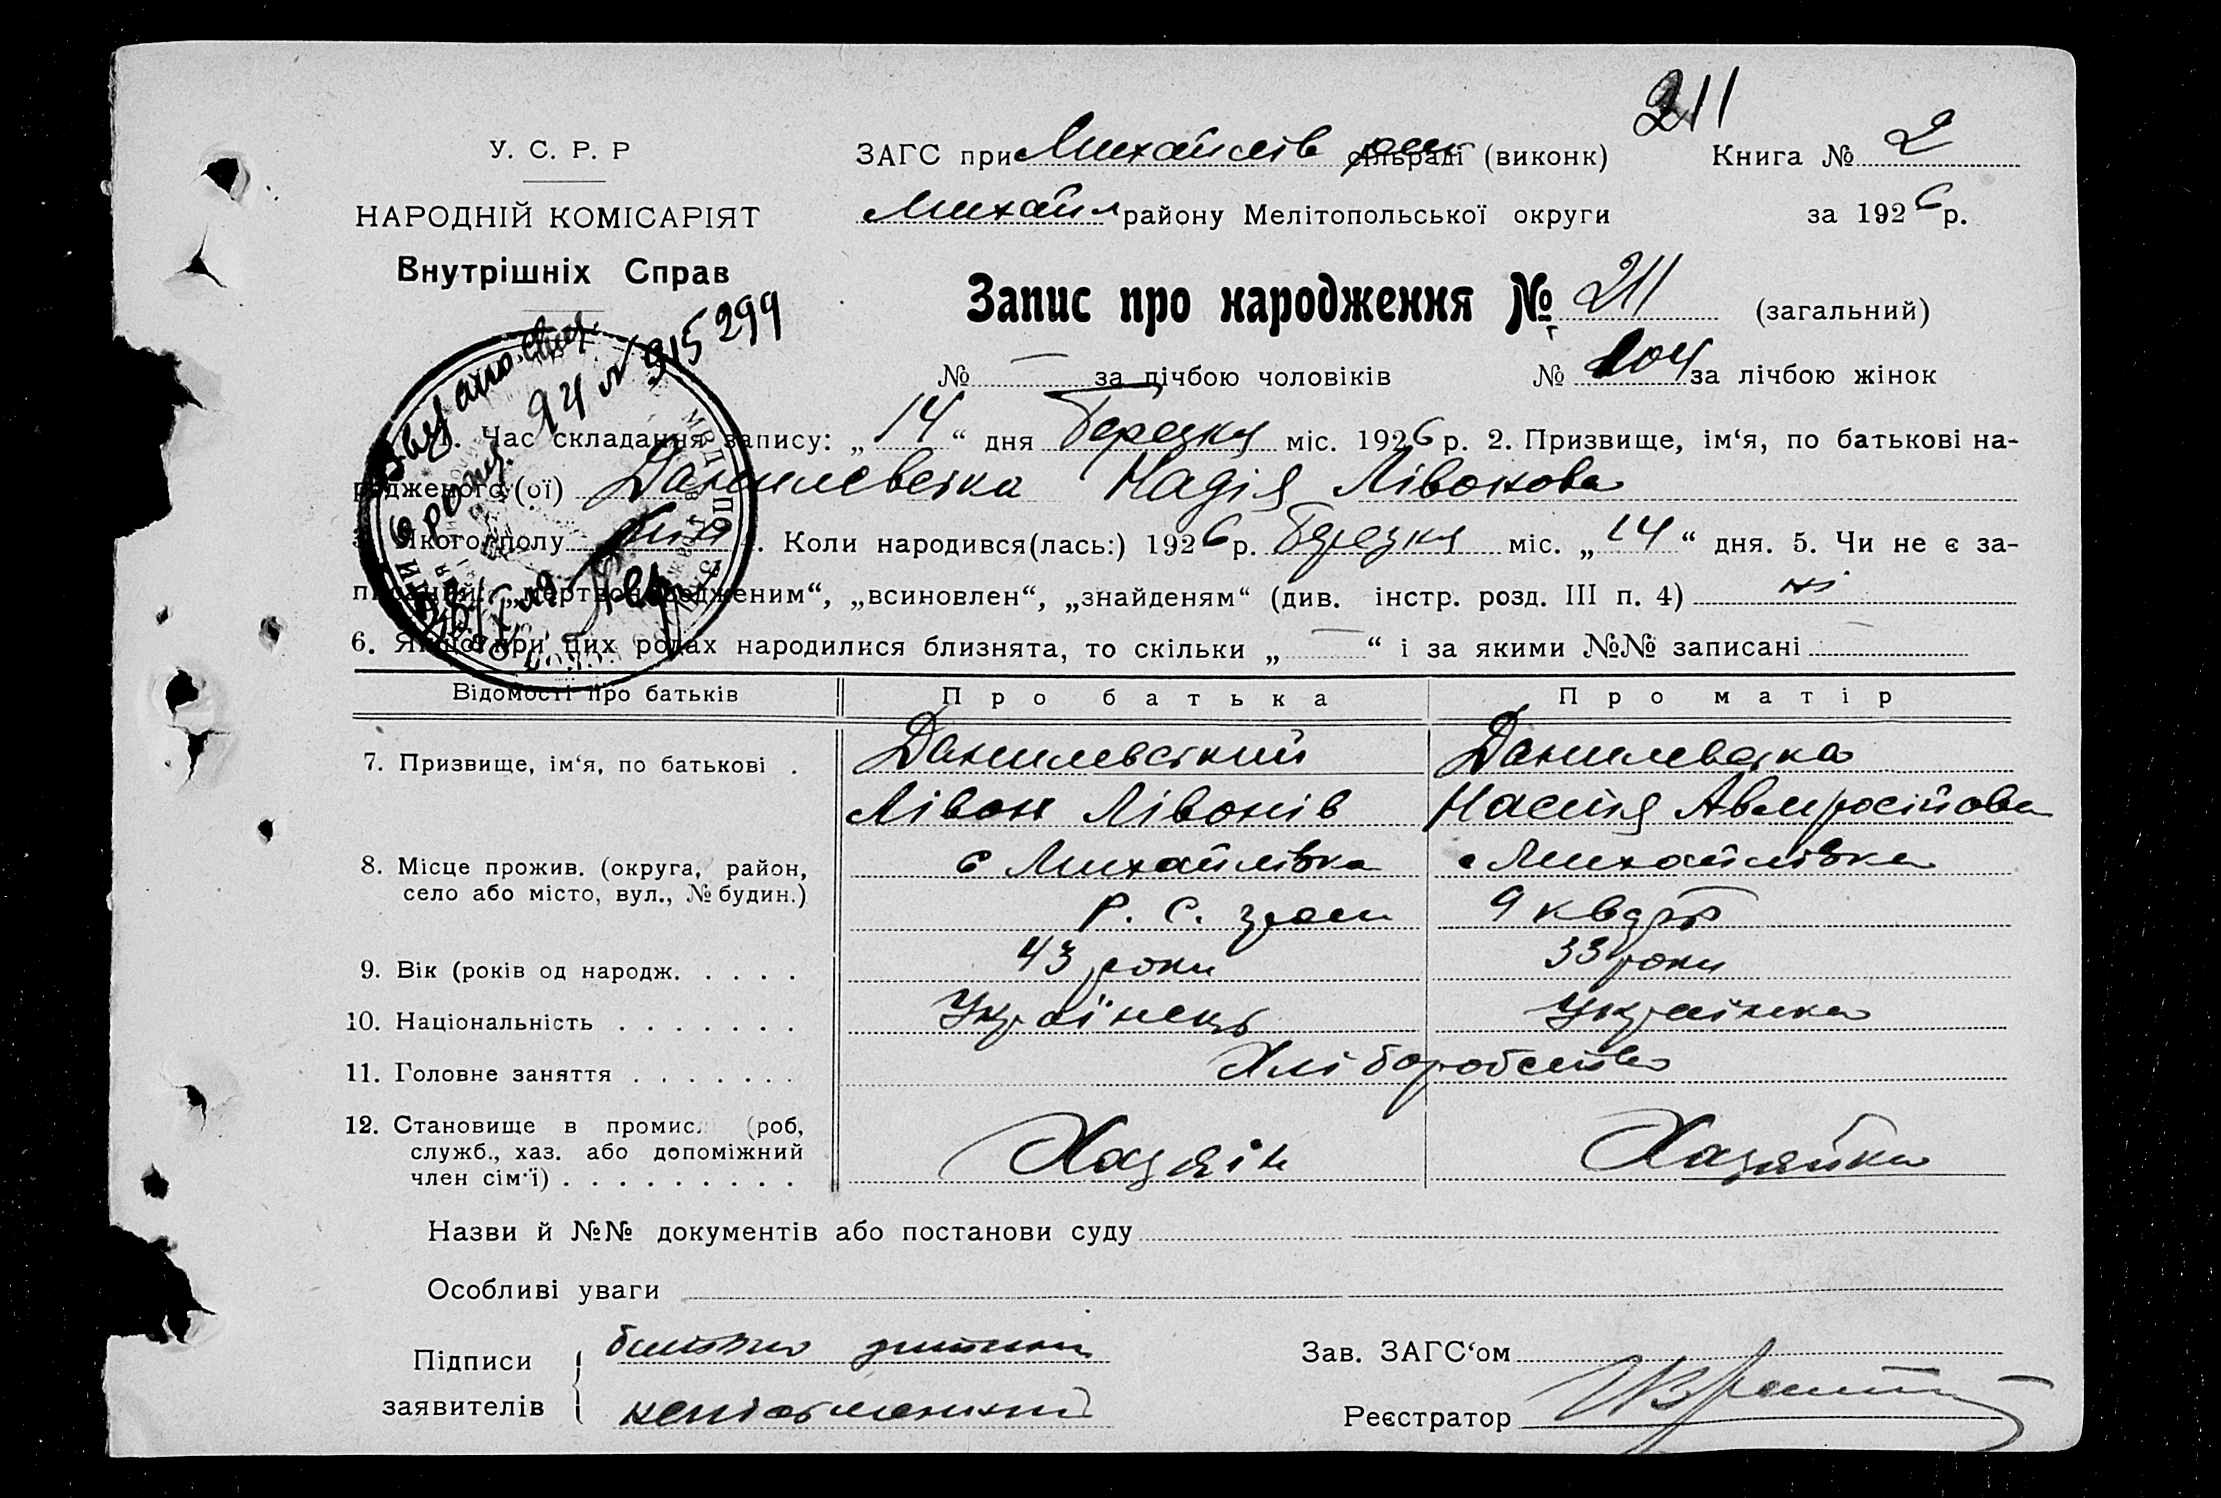 211
У. С. Р. Р
НАРОДНІЙ КОМІСАРІЯТ
Внутрішніх Справ
ЗАГС при Михайлів сільраді (виконк) Книга № 2
Михайл району Мелітопольської округи за 1926 р.
Запис про народження № 211 (загальний)
№ — за лічбою чоловіків № 104 за лічбою жінок
915299
1. Час складання запису: „14“ дня Березня міс. 1926 р. 2. Призвище, ім‘я, по батькові на-
родженого (ої) Данилевська Надія Лівонова
3. Якого полу жін. Коли народився(лась:) 1926 р. Березня міс. „14“ дня. 5. Чи не є за-
писаний: „мертвонародженим“, „всиновлен“, „знайденям“ (див. інстр. розд. III п. 4) ні
6. Якщо при цих родах народилися близнята, то скільки „—“ і за якими №№ записані —
Відомості про батьків Про батька Про матір
7. Призвище, ім‘я, по батькові . Данилевський Данилевська
Лівон Лівонів Настя Амвросійова
8. Місце прожив. (округа, район, с Михайлівка с Михайлівка
село або місто, вул., № будин.) Р. С. 9 квдрт
9. Вік (років од народж. . . . . 43 роки 33 роки
10. Національність . . . . . . . Українець Українка
11. Головне заняття . . . . . . . Хліборобство
12. Становище в промисл (роб,
служб., хаз. або допоміжний Хазяін Хазяйка
член сім‘ї) . . . . . . . . .
Назви й №№ документів або постанови суду
Особливі уваги
Підписи батько дитини Зав. ЗАГС‘ом
заявителів неписьменний Реєстратор